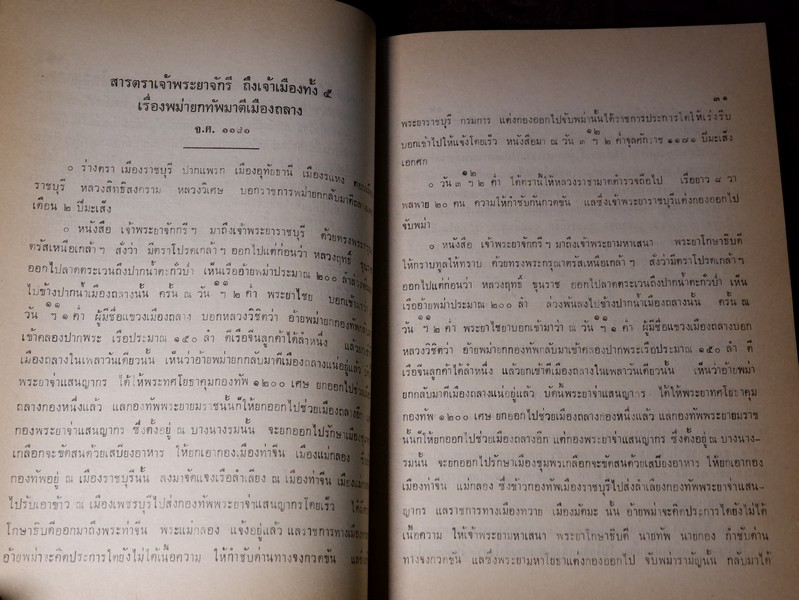 สารตราเจ้าพระยาจักรี ถึงเจ้าเมืองทั้ง ๕
เรื่องพม่ายกทัพมาตีเมืองถลาง
จ.ศ. ๑๑๗๑
๐ ร่างตรา เมืองราชบุรี ปากแพรก เมืองอุทัยธานี เมืองระแหง
ราชบุรี หลวงสิทธิสงคราม หลวงวิเศษ บอกราชการพม่ายกกลับมาตีถลาง
เดือน ๒ ปีมะเส็ง
๐ หนังสือ เจ้าพระยาจักรีฯ มาถึงเจ้าพระยาราชบุรี ด้วยทรงพระกรุณา
ตรัสเหนือเกล้าฯ สั่งว่า มีตราโปรดเกล้าฯ ออกไปแต่ก่อนว่า หลวงฤทธิ์
ออกไปลาดตระเวนถึงปากน้ำตะกั่วป่า เห็นเรืออ้ายพม่าประมาณ ๒๐๐ ลำ
ไปข้างปากน้ำเมืองถลางนั้น ครั้น ณ วัน ๑ ๑ฯ๑ ๒ ค่ำ พระยาไชย บอกเข้ามา
วัน ๑ ๑ฯ๑ ๑ ค่ำ ผู้มีชื่อแขวงเมืองถลาง บอกหลวงวิชิตว่า อ้ายพม่ายกกองทัพกลับ
เข้าคลองปากพระ เรือประมาณ ๑๕๐ ลำ ตีเรือจีนลูกค้าได้ลำหนึ่ง แล้วยก
เมืองถลางในเพลาวันเดียวนั้น เห็นว่าอ้ายพม่ายกกลับมาตีเมืองถลางแน่อยู่แล้ว
พระยาจ่าแสนญากร ได้ให้พระทศโยธาคุมกองทัพ ๑๒๐๐ เศษ ยกออกไปช่วยเมือง
ถลางกองหนึ่งแล้ว แลกองทัพพระยายมราชนั้นก็ให้ยกออกไปช่วยเมืองถลางอีก
กองพระยาจ่าแสนญากร ซึ่งตั้งอยู่ ณ บางนางรมนั้น จะยกออกไปรักษาเมือง
เกลือกจะขัดสนด้วยเสบียงอาหาร ให้ยกเอากองเมืองท่าจีน เมืองแม่กลอง
กองทัพอยู่ ณ เมืองราชบุรีนั้น ลงมาจัดแจงเรือลำเลียง ณ เมืองท่าจีน เมืองแม่กลอง
ไปรับเอาข้าว ณ เมืองเพชรบุรีไปส่งกองทัพพระยาจ่าแสนญากรโดยเร็ว
โกษาธิบดีออกมาถึงพระท่าจีน พระแม่กลอง แจ้งอยู่แล้ว แลราชการทางเมือง
อ้ายพม่าจะคิดประการใดยังไม่ได้เนื้อความ ให้กำชับด่านทางจงกวดขัน
๓๑
พระยาราชบุรี กรมการ แต่งกองออกไปจับพม่านั้นได้ราชการประมารใดให้เร่งรีบ
บอกเข้าไปให้แจ้งโดยเร็ว หนังสือมา ณ วัน ๓ ๑๒ฯ ๒ ค่ำจุลศักราช ๑๑๗๑ ปีมะเส็ง
เอกศก
๐ วัน ๓ ๑๒ฯ ๒ ค่ำ ได้ตรานี้ให้หลวงราชามาตำรวจถือไป เรือยาว ๘ วา
พลพาย ๒๐ คน ความให้กำชับกันกวดขัน แลซึ่งเจ้าพระยาราชบุรีแต่งกองออกไป
จับพม่า
๐ หนังสือ เจ้าพระยาจักรีฯ มาถึงเจ้าพระยามหาเสนา พระยาโกษาธิบดี
ให้กราบทูลให้ทราบ ด้วยทรงพระกรุณาตรัสเหนือเกล้าฯ สั่งว่ามีตราโปรดเกล้าฯ
ออกไปแต่ก่อนว่า หลวงฤทธิ์ ขุนราช ออกไปลาดตระเวนถึงปากน้ำตะกั่วป่า เห็น
เรืออ้ายพม่าประมาณ ๒๐๐ ลำ ล่วงพ้นลงไปข้างปากน้ำเมืองถลางนั้น ครั้น ณ
วัน ๑ ๑ฯ๑ ๒ ค่ำ พระยาไชยาบอกเข้ามาว่า ณ วัน ๑ ๑ฯ๑ ๑ ค่ำ ผู้มีชื่อแขวงเมืองถลางบอก
หลวงวิชิตว่า อ้ายพม่ายกกองทัพกลับมาเข้าคลองปากพระเรือประมาณ ๑๕๐ ลำ ตี
เรือจีนลูกค้าได้ลำหนึ่ง แล้วยกเข้าตีเมืองถลางในเพลาวันเดียวนั้น เห็นว่าอ้ายพม่า
ยกกลับมาตีเมืองถลางแน่อยู่แล้ว บัดนี้พระยาจ่าแสนญากร ได้ให้พระยาทศโยธาคุม
กองทัพ ๑๒๐๐ เศษ ยกออกไปช่วยเมืองถลางกองหนึ่งแล้ว แลกองทัพพระยายมราช
นั้นก็ให้ยกออกไปช่วยเมืองถลางอีก แต่กองพระยาจ่าแสนญากร ซึ่งตั้งอยู่ ณ บางนาง-
รมนั้น จะยกออกไปรักษาเมืองชุมพรเกลือกจะขัดสนด้วยเสบียงอาหาร ให้ยกเอากอง
เมืองท่าจีน แม่กลอง ซึ่งข้าวกองทัพเมืองราชบุรีไปส่งลำเลียงกองทัพพระยาจ่าแสน-
ญากร แลราชการทางเมืองทวาย เมืองมัตมะ นั้น อ้ายพม่าจะคิดประการใดยังไม่ได้
เนื้อความ ให้เจ้าพระยามหาเสนา พระยาโกษาธิบดี นายทัพ นายกอง กำชับด่าน
ทางจงกวดขัน แลซึ่งพระยามหาโยธาแต่งกองออกไป จับพม่ารามัญนั้น กลับมาได้